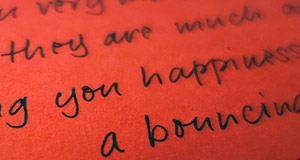 you very m
they are much a
g you happiness
a bouncing